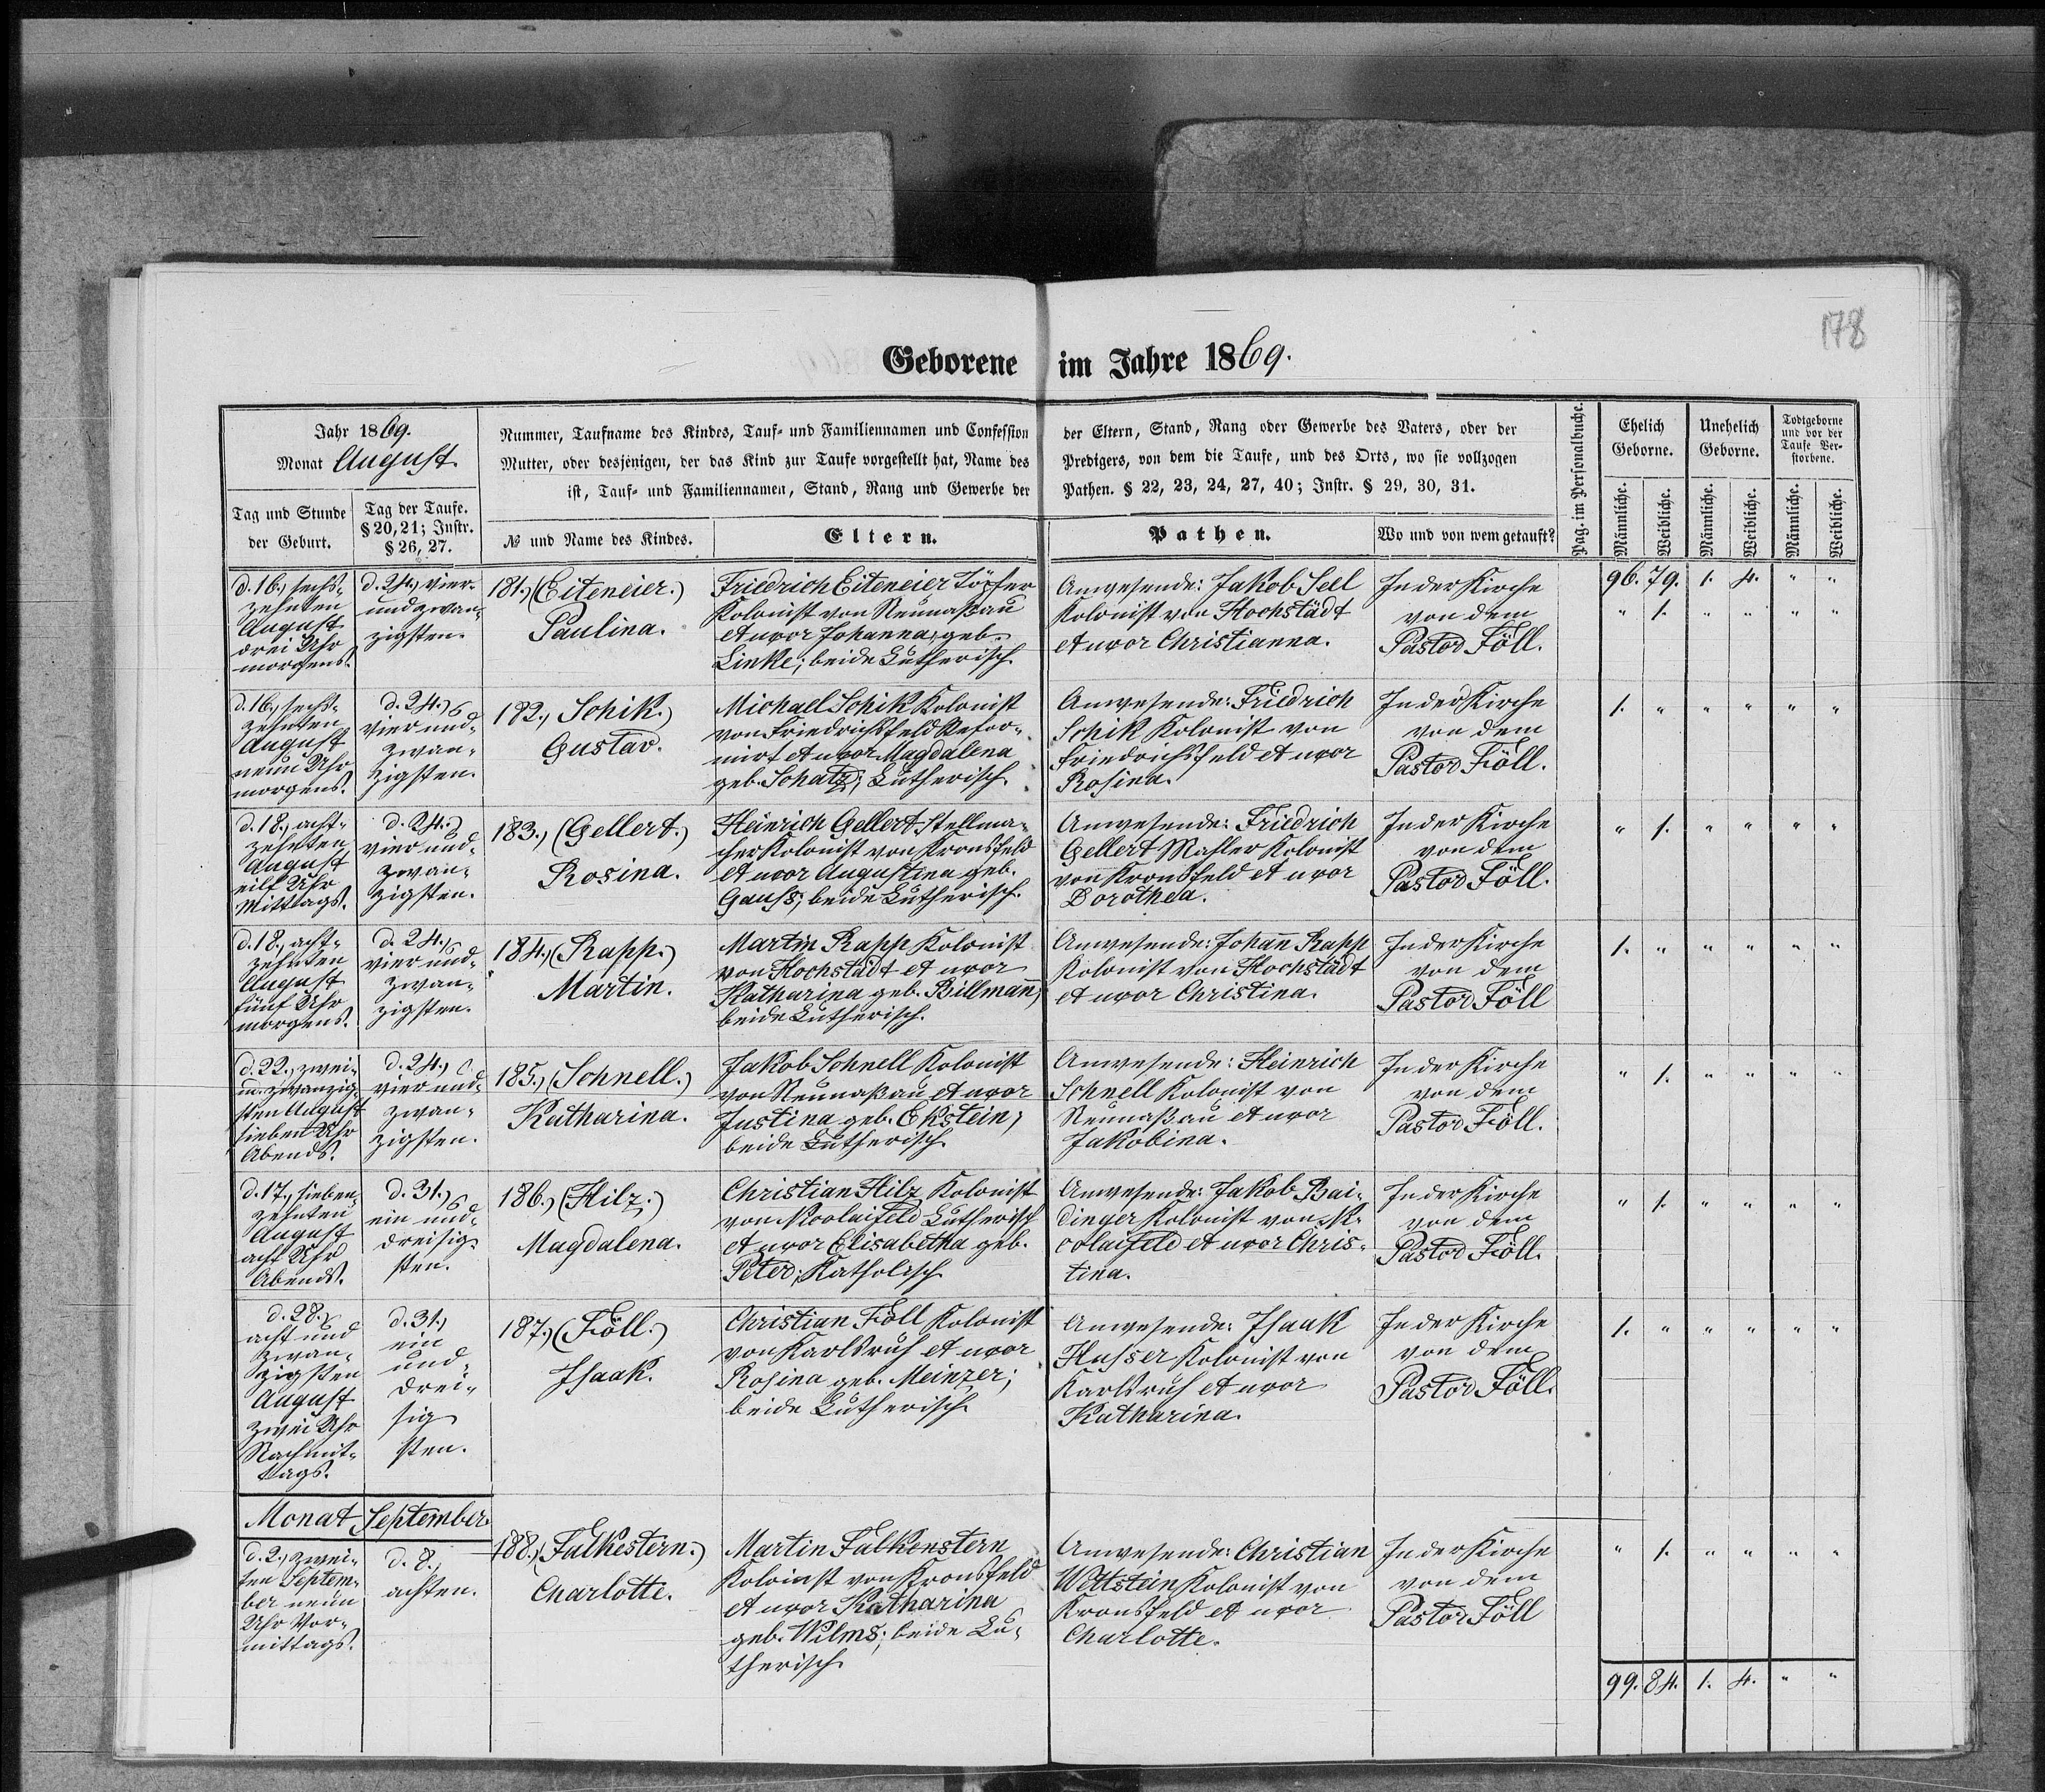 178
Geborene im Jahre 1869.
Jahr 1869.
Monat August
Tag und Stunde
der Geburt.
Tag der Taufe.
§ 20, 21; Instr.
§ 26, 27.
Nummer, Taufname des Kindes, Tauf- und Familiennamen und Confession
Mutter, oder desjenigen, der das Kind zur Taufe vorgestellt hat, Name des
ist, Tauf- und Familiennamen, Stand, Rang und Gewerbe der
№ und Name des Kindes.
Eltern.
der Eltern, Stand, Rang oder Gewerbe des Vaters, oder der
Predigers, von dem die Taufe, und des Orts, wo sie vollzogen
Pathen. § 22, 23, 24, 27, 40; Instr. § 29, 30, 31.
Pathen.
Wo und von wem getauft?
Pag. im Personalbuche.
Ehelich
Geborne.
Unehelich
Geborne.
Todtgeborne
und vor der
Taufe Ver-
storbene.
Männliche.
Weibliche.
Männliche.
Weibliche.
Männliche.
Weibliche.
d. 16., sechs-
zehnten
August
drei Uhr
morgens.
d. 24., vier-
und zwan-
zigsten.
181.) (Eiteneier.)
Paulina.
Friedrich Eiteneier Töpfer
Kolonist von Neunaßau
et uxor Johanna, geb.
Linke; beide Lutherisch.
Anwesende: Jakob Sell
Kolonist von Hochstädt
et uxor Christianna.
In der Kirche
von dem
Pastor Föll.
96. 79. 1. 4. " "
" 1. " " " "
d. 16., sechs-
zehnten
August
neun Uhr
morgens.
d. 24.,
vier und-
zwan-
zigsten.
182., Schik.)
Gustav.
Michael Schik Kolonist
von Friedrichsfeld Refor-
mirt et uxor Magdalena
geb. Schatz; Lutherisch.
Anwesende: Friedrich
Schik Kolonist von
Friedrichsfeld et uxor
Rosina.
In der Kirche
von dem
Pastor Föll.
1. " " " " "
d. 18., acht-
zehnten
August
eilf Uhr
Mittags.
d. 24.,
vier und-
zwan-
zigsten.
183.) (Gellert.)
Rosina.
Heinrich Gellert Stellma-
cher Kolonist von Kronsfeld
et uxor Augustina geb.
Gauss; beide Lutherisch.
Anwesende: Friedrich
Gellert Mahler Kolonist
von Kronsfeld et uxor
Dorothea.
In der Kirche
von dem
Pastor Föll.
" 1. " " " "
d. 18., acht-
zehnten
August
fünf Uhr
morgens.
d. 24.,
vier und-
zwan-
zigsten.
184.) (Rapp.)
Martin.
Martin Rapp Kolonist
von Hochstädt et uxor
Katharina geb. Billmann,
beide Lutherisch.
Anwesende: Johann Rapp
Kolonist von Hochstädt
et uxor Christina.
In der Kirche
von dem
Pastor Föll
1. " " " " "
d. 22., zwei-
und zwanzig-
sten August
sieben Uhr
Abends.
d. 24.,
vier und-
zwan-
zigsten.
185.) (Schnell.)
Katharina.
Jakob Schnell Kolonist
von Neunaßau et uxor
Justina geb. Ekstein,
beide Lutherisch.
Anwesende: Heinrich
Schnell Kolonist von
Neunaßau et uxor
Jakobina.
In der Kirche
von dem
Pastor Föll.
" 1. " " " "
d. 17., sieben-
zehnten
August
acht Uhr
Abends.
d. 31.,
ein und-
dreisig-
sten.
186.) (Hilz.)
Magdalena.
Christian Hilz Kolonist
von Nicolaifeld Lutherisch
et uxor Elisabetha geb.
Peter; Katholisch.
Anwesende: Jakob Bai-
dinger Kolonist von Ni-
colaifeld et uxor Chris-
tina.
In der Kirche
von dem
Pastor Föll.
" 1. " " " "
d. 28.,
acht und
zwan-
zigsten
August
zwei Uhr
Nachmit-
tags.
d. 31.,
ein
und-
drei-
sig
sten.
187.) (Föll.)
Isaak.
Christian Föll Kolonist
von Karlsruh et uxor
Rosina geb. Meinzer;
beide Lutherisch.
Anwesende: Isaak
Husser Kolonist von
Karlsruh et uxor
Katharina.
In der Kirche
von dem
Pastor Föll.
1. " " " " "
Monat September
d. 2., zwei-
ten Septem-
ber neun
Uhr Vor-
mittags.
d. 8.,
achten.
188.) (Falkestern.)
Charlotte.
Martin Falkenstern
Kolonist von Kronsfeld
et uxor Katharina
geb. Wilms; beide Lu-
therisch.
Anwesende: Christian
Wettstein Kolonist von
Kronsfeld et uxor
Charlotte.
In der Kirche
von dem
Pastor Föll
" 1. " " " "
99. 84. 1. 4. " "